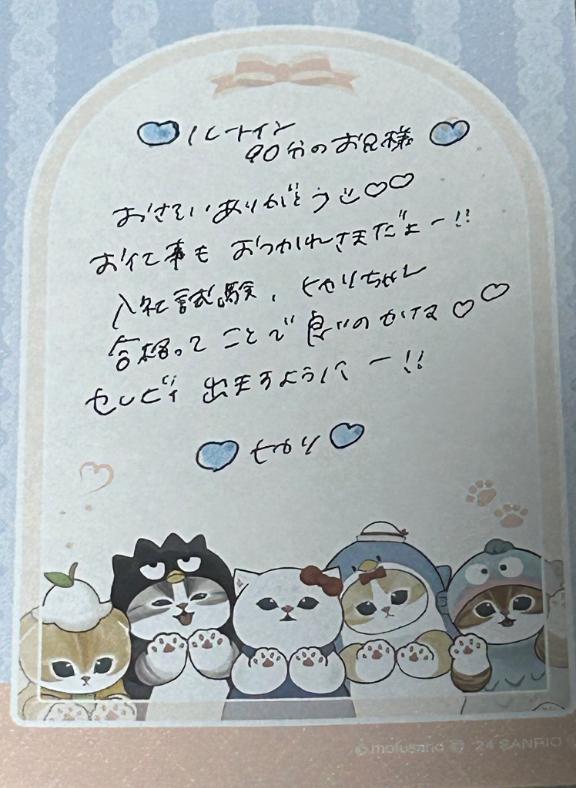 ルートイン
90分のお兄様
おさそいありがとう♡♡
お仕事も おつかれさまだよー!!
入社試験、ヒカリちゃん
合格ってことで良いのかな♡♡
セレビィ 出ますようにー!!
ヒカリ
©mofusand © '24 SANRIO